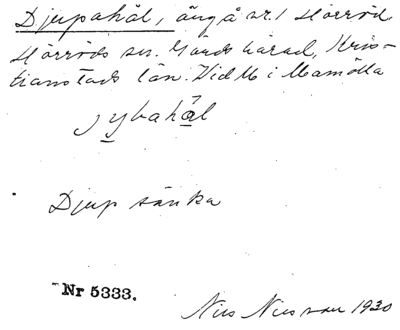 Djupahål, äng å nr 1 Hörröd
Hörröds sn. Gärds härad, Kris-
tianstads län. Vid M i Mamölla
jybahål
Djup sänka
Nr 5333.
Nils Nilsson 1930